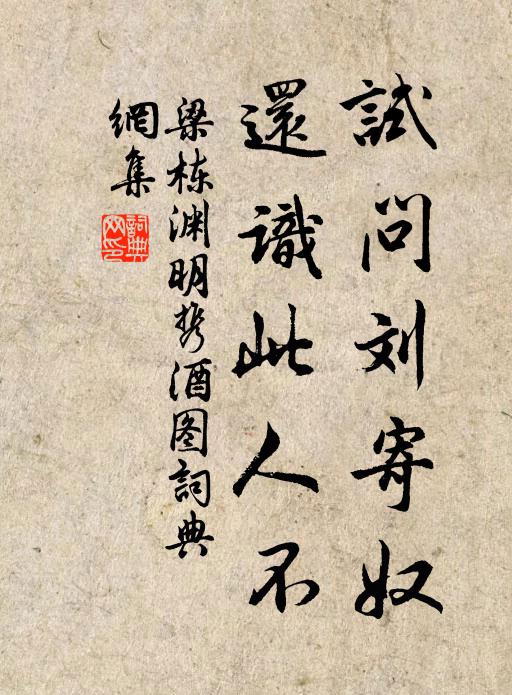 試问刘寄奴
還識此人不
梁栋渊明携酒图詞典
網集
詞典网印